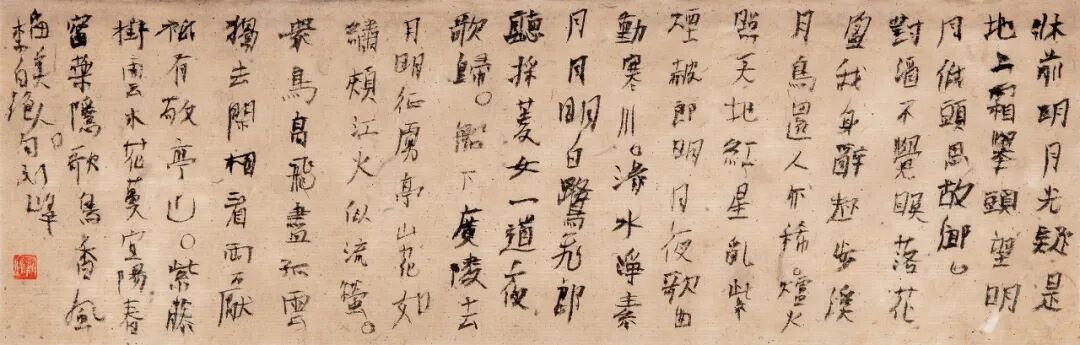 牀前明月光疑是
地上霜舉頭望明
月低頭思故鄉。
對酒不覺暝落花
盈我身醉起步溪
月鳥還人亦稀。爐火
照天地紅星亂紫
煙赧郎明月夜歌曲
動寒川。淥水淨素
月月明白鷺飛郎
聽採菱女一道夜
歌歸。船下廣陵去
月明征虜亭山花如
繡頰江火似流螢。
眾鳥高飛盡孤雲
獨去閑相看兩不厭
祗有敬亭山。紫藤
掛雲木花蔓宜陽春
密葉隱歌鳥香風
留美人。
李白絕句刘峰